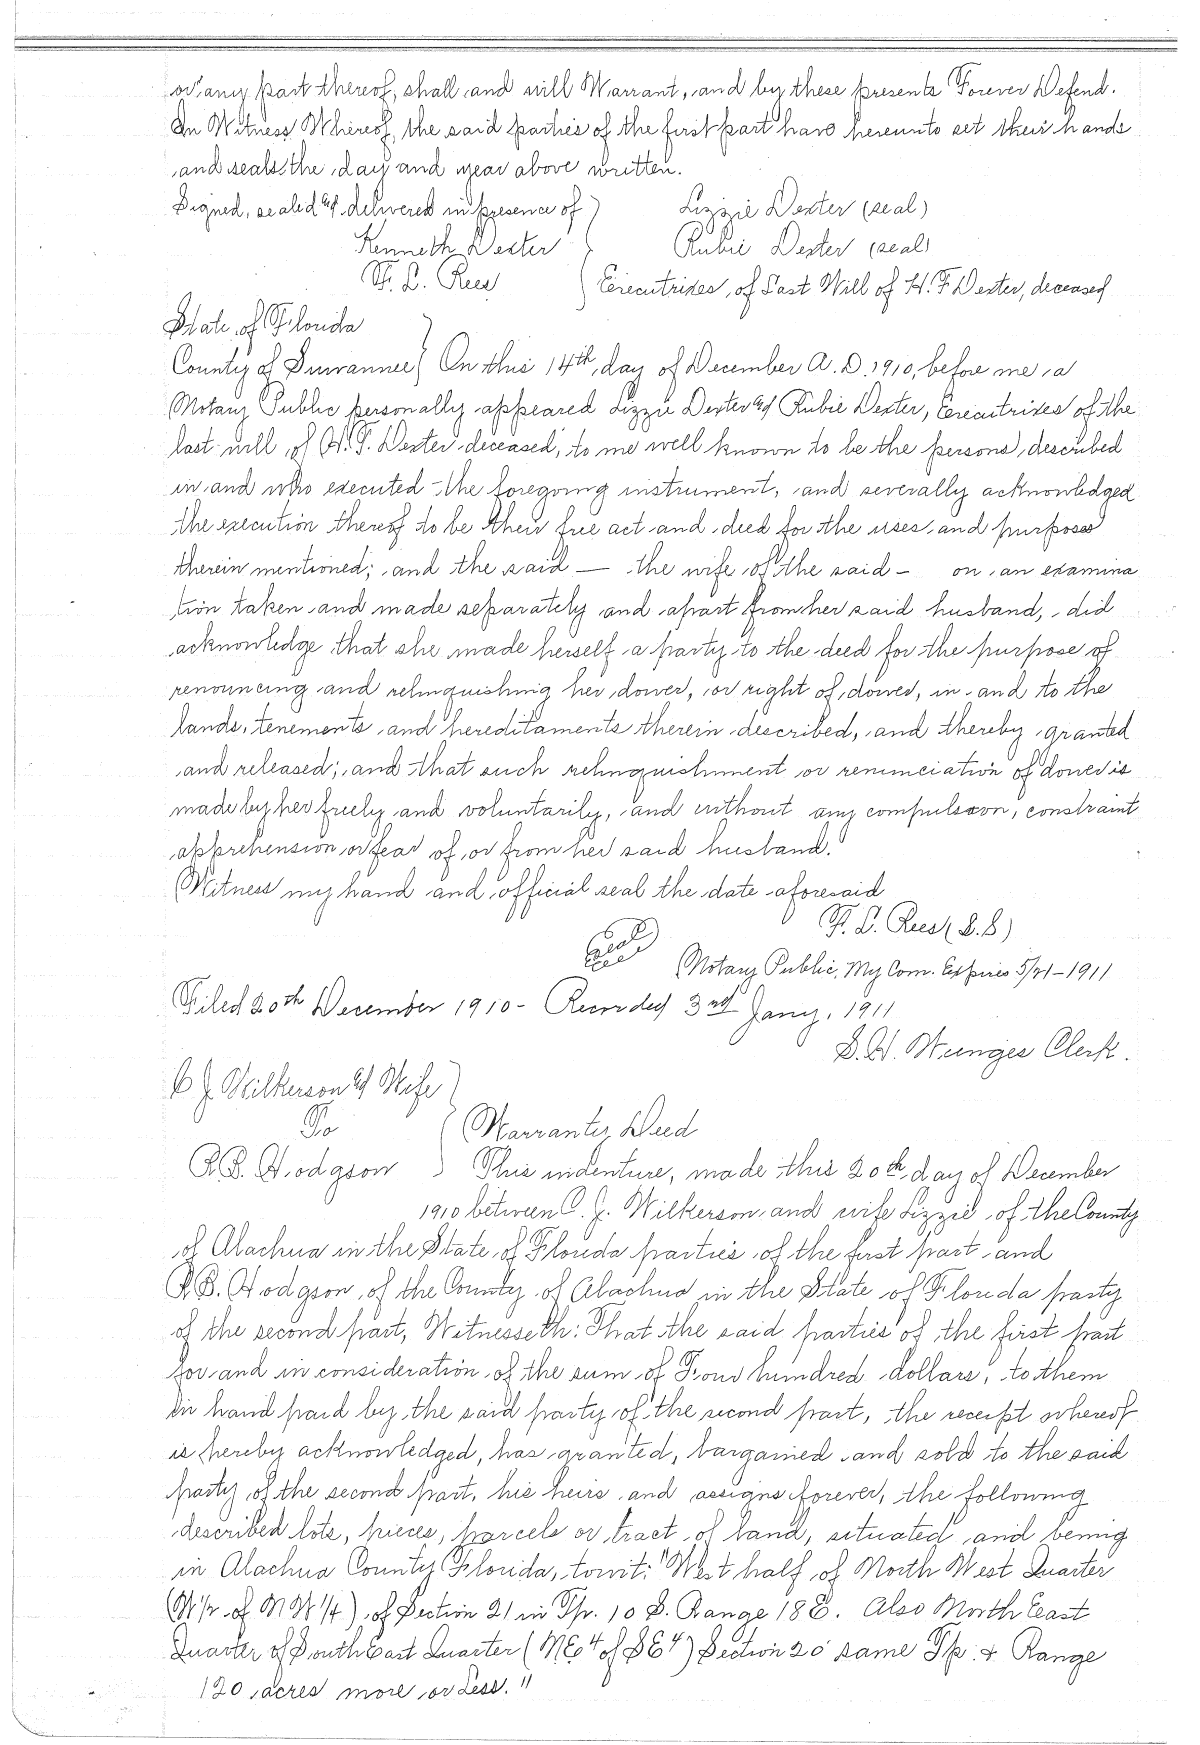 or any part thereof, shall and will Warrant, and by these presents Forever Defend.
In Witness Whereof, the said parties of the first part have hereunto set their hands
and seals the day and year above written.
Signed, sealed & delivered in presence of } Lizzie Dexter (seal)
Kenneth Dexter } Rubie Dexter (seal)
F. L. Rees } Executrixes of Last Will of H. F Dexter, deceased
State of Florida }
County of Suwannee } On this 14th day of December A. D. 1910, before me a
Notary Public personally appeared Lizzie Dexter & Rubie Dexter, Executrixes of the
last will of H. F. Dexter deceased, to me well known to be the persons described
in and who executed the foregoing instrument, and severally acknowledged
the execution thereof to be their free act and deed for the uses and purposes
therein mentioned; and the said — the wife of the said - on an examina
tion taken and made separately and apart from her said husband, did
acknowledge that she made herself a party to the deed for the purpose of
renouncing and relinquishing her dower, or right of dower, in and to the
lands, tenements and hereditaments therein described, and thereby granted
and released; and that such relinquishment or renunciation of dower is
made by her freely and voluntarily, and without any compulsion, constraint
apprehension or fear of or from her said husband.
Witness my hand and official seal the date aforesaid
F. L. Rees (L.S)
Seal
Notary Public, My Com. Expires 5/21-1911
Filed 20th December 1910 - Recorded 3rd Jany. 1911
S. H. Wienges Clerk.
C J. Wilkerson & Wife }
To { Warranty Deed
R. B. Hodgson } This indenture, made this 20th day of December
1910 between C. J. Wilkerson and wife Lizzie of the County
of Alachua in the State of Florida parties of the first part and
R. B. Hodgson of the County of Alachua in the State of Florida party
of the second part, Witnesseth: That the said parties of the first part
for and in consideration of the sum of Four hundred dollars, to them
in hand paid by the said party of the second part, the receipt whereof
is hereby acknowledged, has granted, bargained and sold to the said
party of the second part, his heirs and assigns forever, the following
described lots, pieces, parcels or tract of land, situated and being
in Alachua County Florida, towit: "West half of North West Quarter
(W 1/2 of N W 1/4) of Section 21 in Tp. 10 S. Range 18 E. Also North East
Quarter of South East Quarter (NE 4 of SE 4) Section 20 same Tp. & Range
120 acres more or Less."